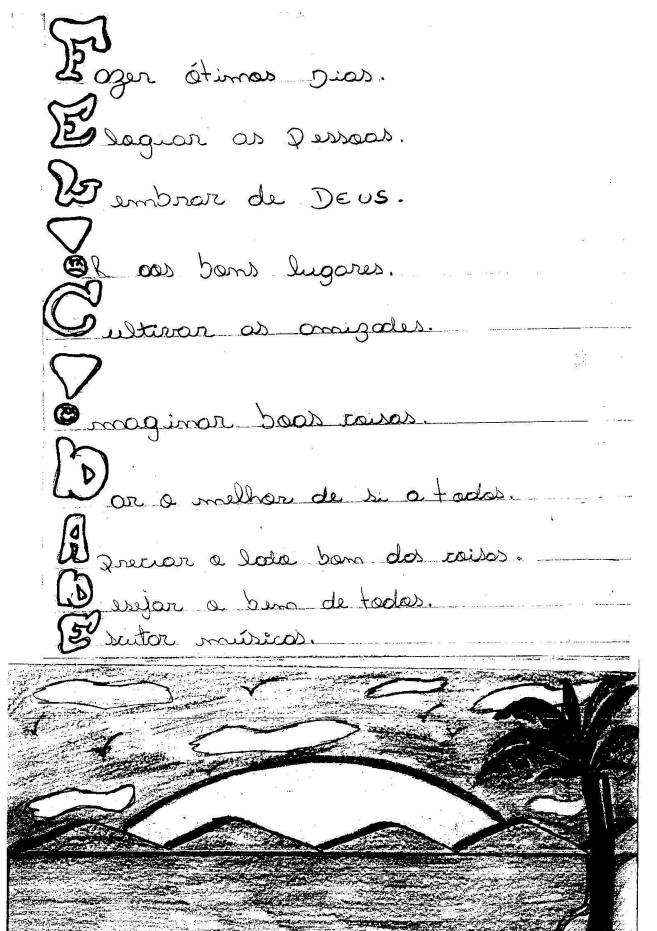 Fazer ótimos Dias.
Elogiar as Pessoas.
Lembrar de DEUS.
IR aos bons lugares.
Cultivar as amizades.
Imaginar boas coisas.
Dar o melhor de si a todos.
Apreciar o lado bom das coisas.
Desejar o bem de todos.
Escutar músicas.